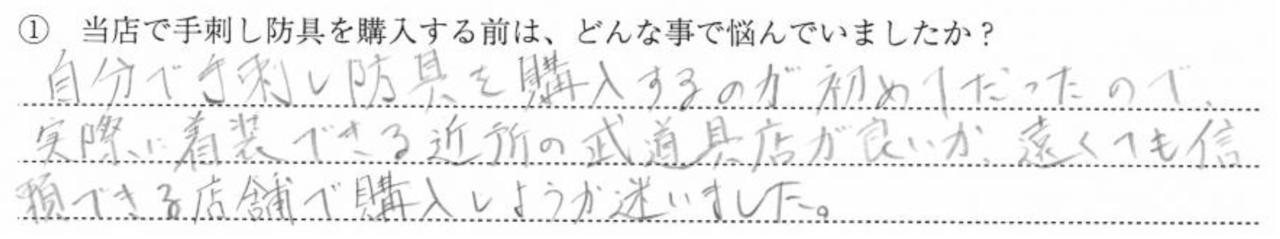 ① 当店で手刺し防具を購入する前は、どんな事で悩んでいましたか？
自分で手刺し防具を購入するのが初めてだったので、
実際に着装できる近所の武道具店が良いか、遠くても信
頼できる店舗で購入しようか迷いました。